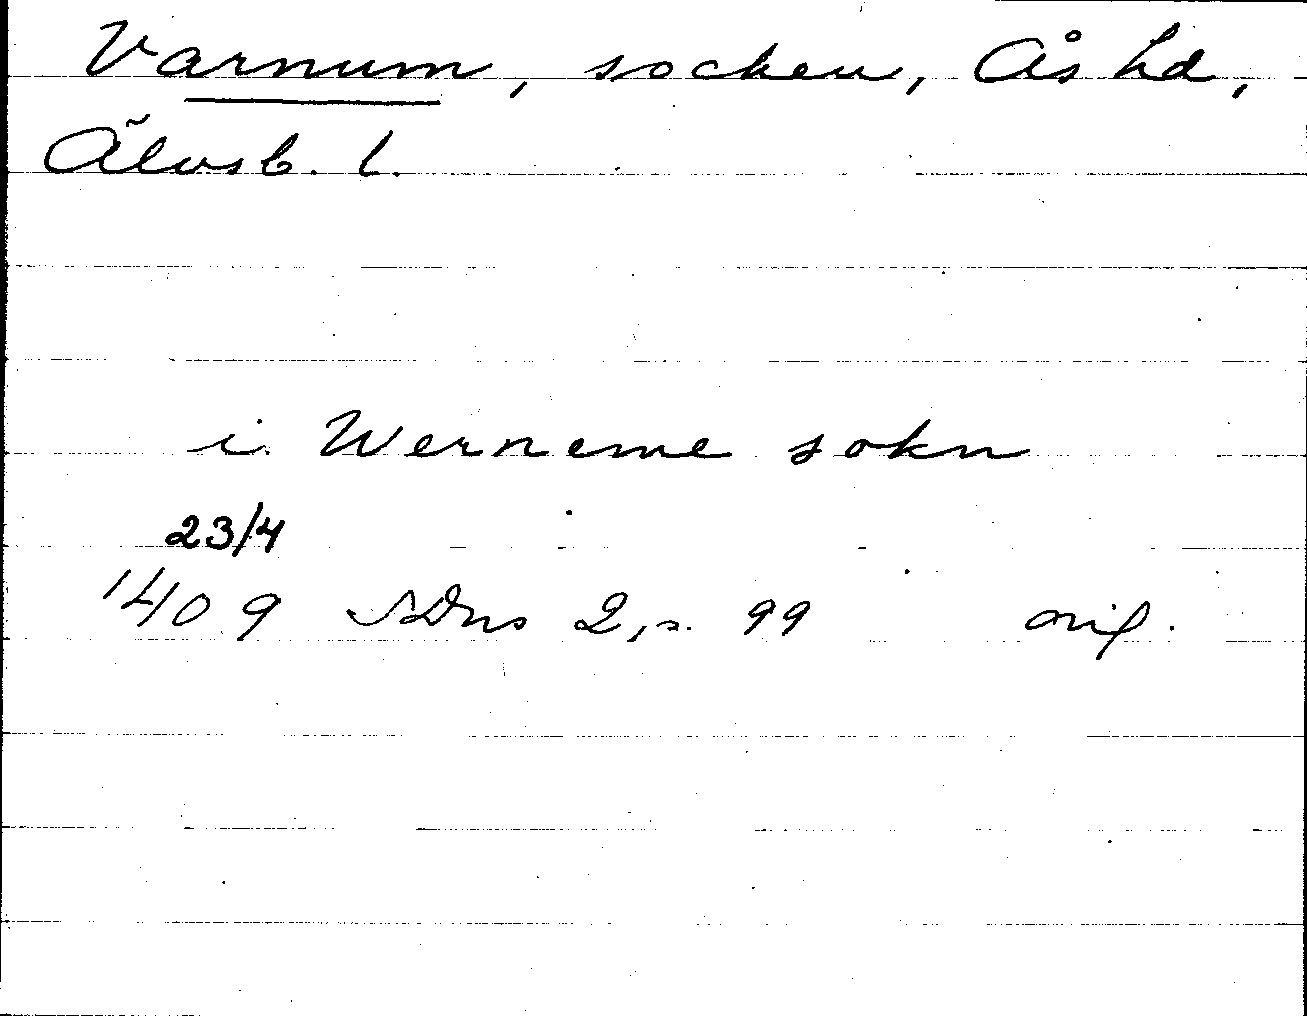 Varnum, socken, Ås hd,
Älvsb. l.
i Werneme sokn
23/4
1409 SDns 2, s. 99 orig.